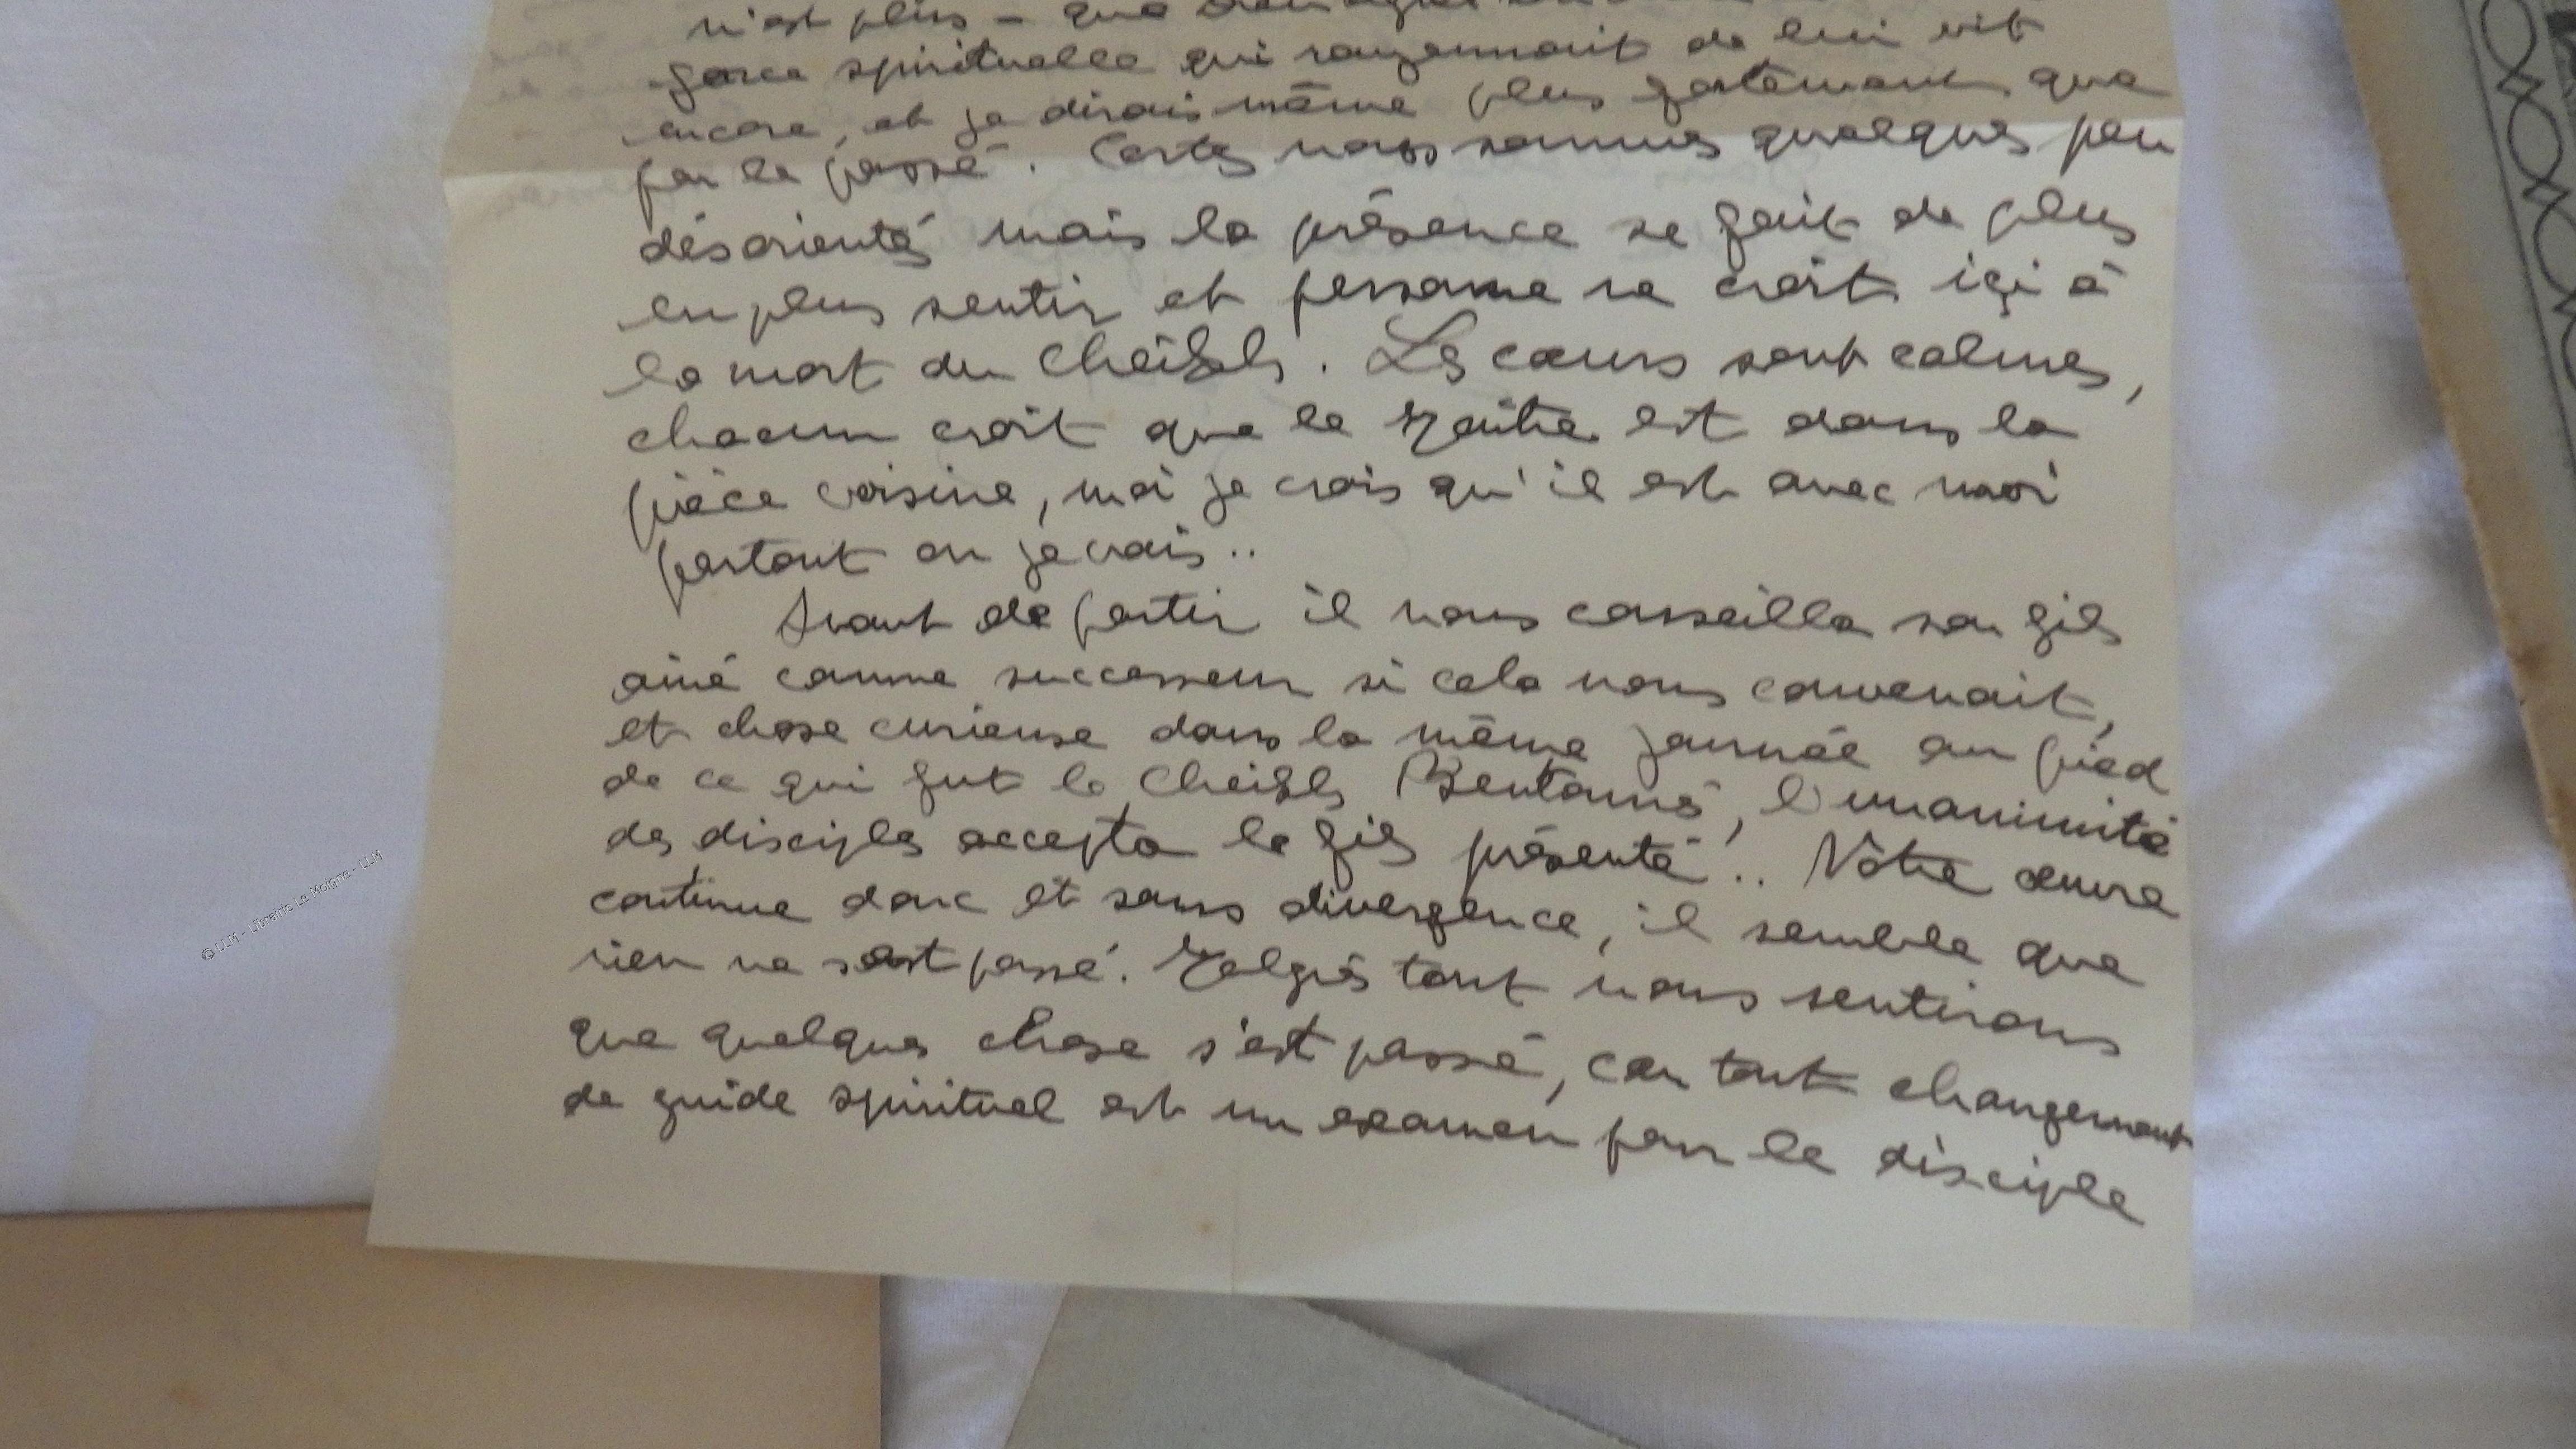 n'est plus – que
force spirituelle qui rayonnait de lui vit
encore, et je dirais même plus fortement que
par le passé. Certes nous sommes quelques peu
désorientés mais la présence se fait de plus
en plus sentir et personne ne croit içi à
la mort du Cheikh. Les cœurs sont calmes,
chacun croit que le Maître est dans la
pièce voisine, moi je crois qu'il est avec moi
partout ou je vais..
Avant de partir il nous conseilla son fils
ainé comme successeur si cela nous convenait,
et chose curieuse dans la même journée au pied
de ce qui fut le Cheikh Bentounès, l'unanimité
des disciples accepta le fils présenté.. Nôtre œuvre
continue donc et sans divergence, il semble que
rien ne s'est passé. Malgrés tout nous sentirons
que quelques chose s'est passé, car tout changement
de guide spirituel est un examen pour le disciple
© LLM - Librairie Le Moigne - LLM